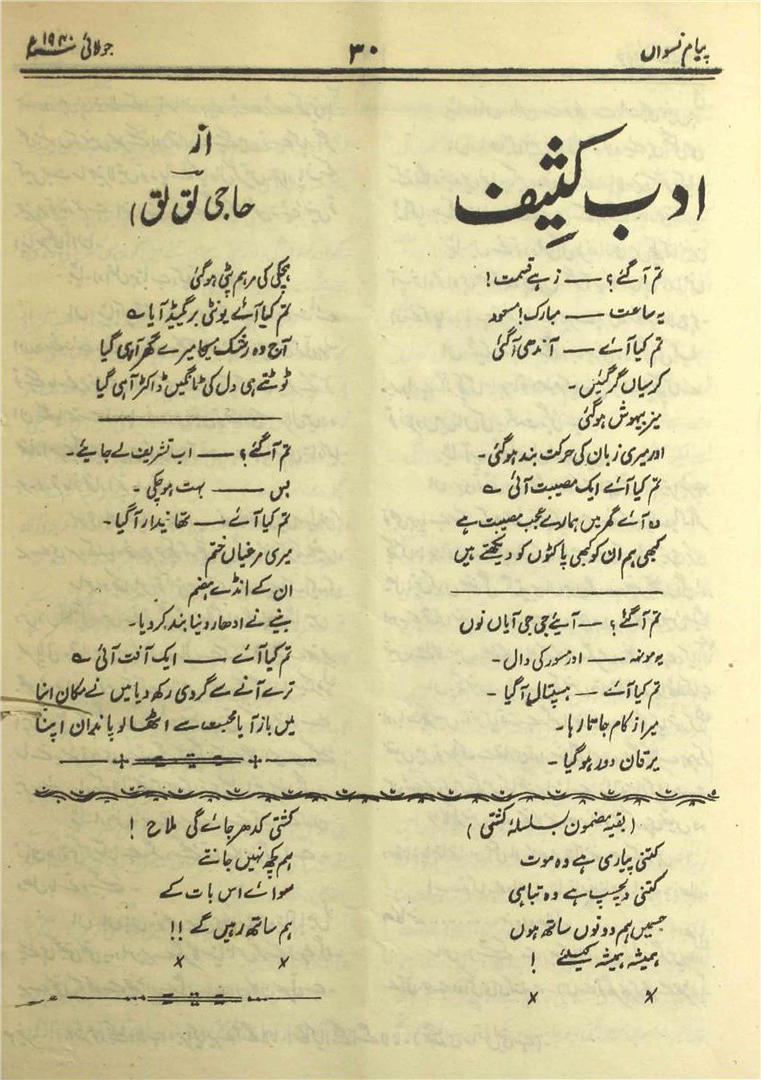 پیام نسواں
۳۰
جولائی ۱۹۴۰ء
ادب کثیف
از
حاجی لق لق)
تم آگئے؟ — زہے قسمت!
یہ ساعت — مبارک! مسعود
تم کیا آئے — آندھی آگئی
کرسیاں گر گئیں۔
میز بیہوش ہوگئی
اور میری زبان کی حرکت بند ہوگئی۔
تم کیا آئے ایک مصیبت آئی ے
وہ آئے گھر میں ہمارے عجب مصیبت ہے
کبھی ہم ان کو کبھی پاکٹوں کو دیکھتے ہیں
تم آگئے؟ — آیئے جی جی آیاں نوں
یہ مونہہ — اور مسور کی دال۔
تم کیا آئے — ہسپتال آگیا۔
میرا زکام جاتا رہا۔
یرقان دور ہوگیا۔
ہچکی کی مرہم پٹی ہوگئی
تم کیا آئے یونٹی برگیڈ آیا ے
آج وہ رشک مسیحا میرے گھر آہی گیا
ٹوٹتے ہی دل کی ٹانگیں ڈاکٹر آہی گیا
تم آگئے؟ — اب تشریف لے جایئے۔
بس — بہت ہوچکی۔
تم کیا آئے — تھانیدار آگیا۔
میری مرغیاں ختم
ان کے انڈے ہضم
بنئے نے ادھار دینا بند کردیا۔
تم کیا آئے — ایک آفت آئی ے
ترے آنے سے گردی رکھ دیا میں نے مکان اپنا
میں باز آیا محبت سے اٹھا لو پاندان اپنا
(بقیہ مضمون بسلسلۂ کشتی)
کتنی پیاری ہے وہ موت
کتنی دلچسپ ہے وہ تباہی
جسمیں ہم دونوں ساتھ ہوں
ہمیشہ ہمیشہ کیلئے !
× ×
کشتی کدھر جائے گی ملاح !
ہم کچھ نہیں جانتے
سوائے اس بات کے
ہم ساتھ رہیں گے !!
× ×